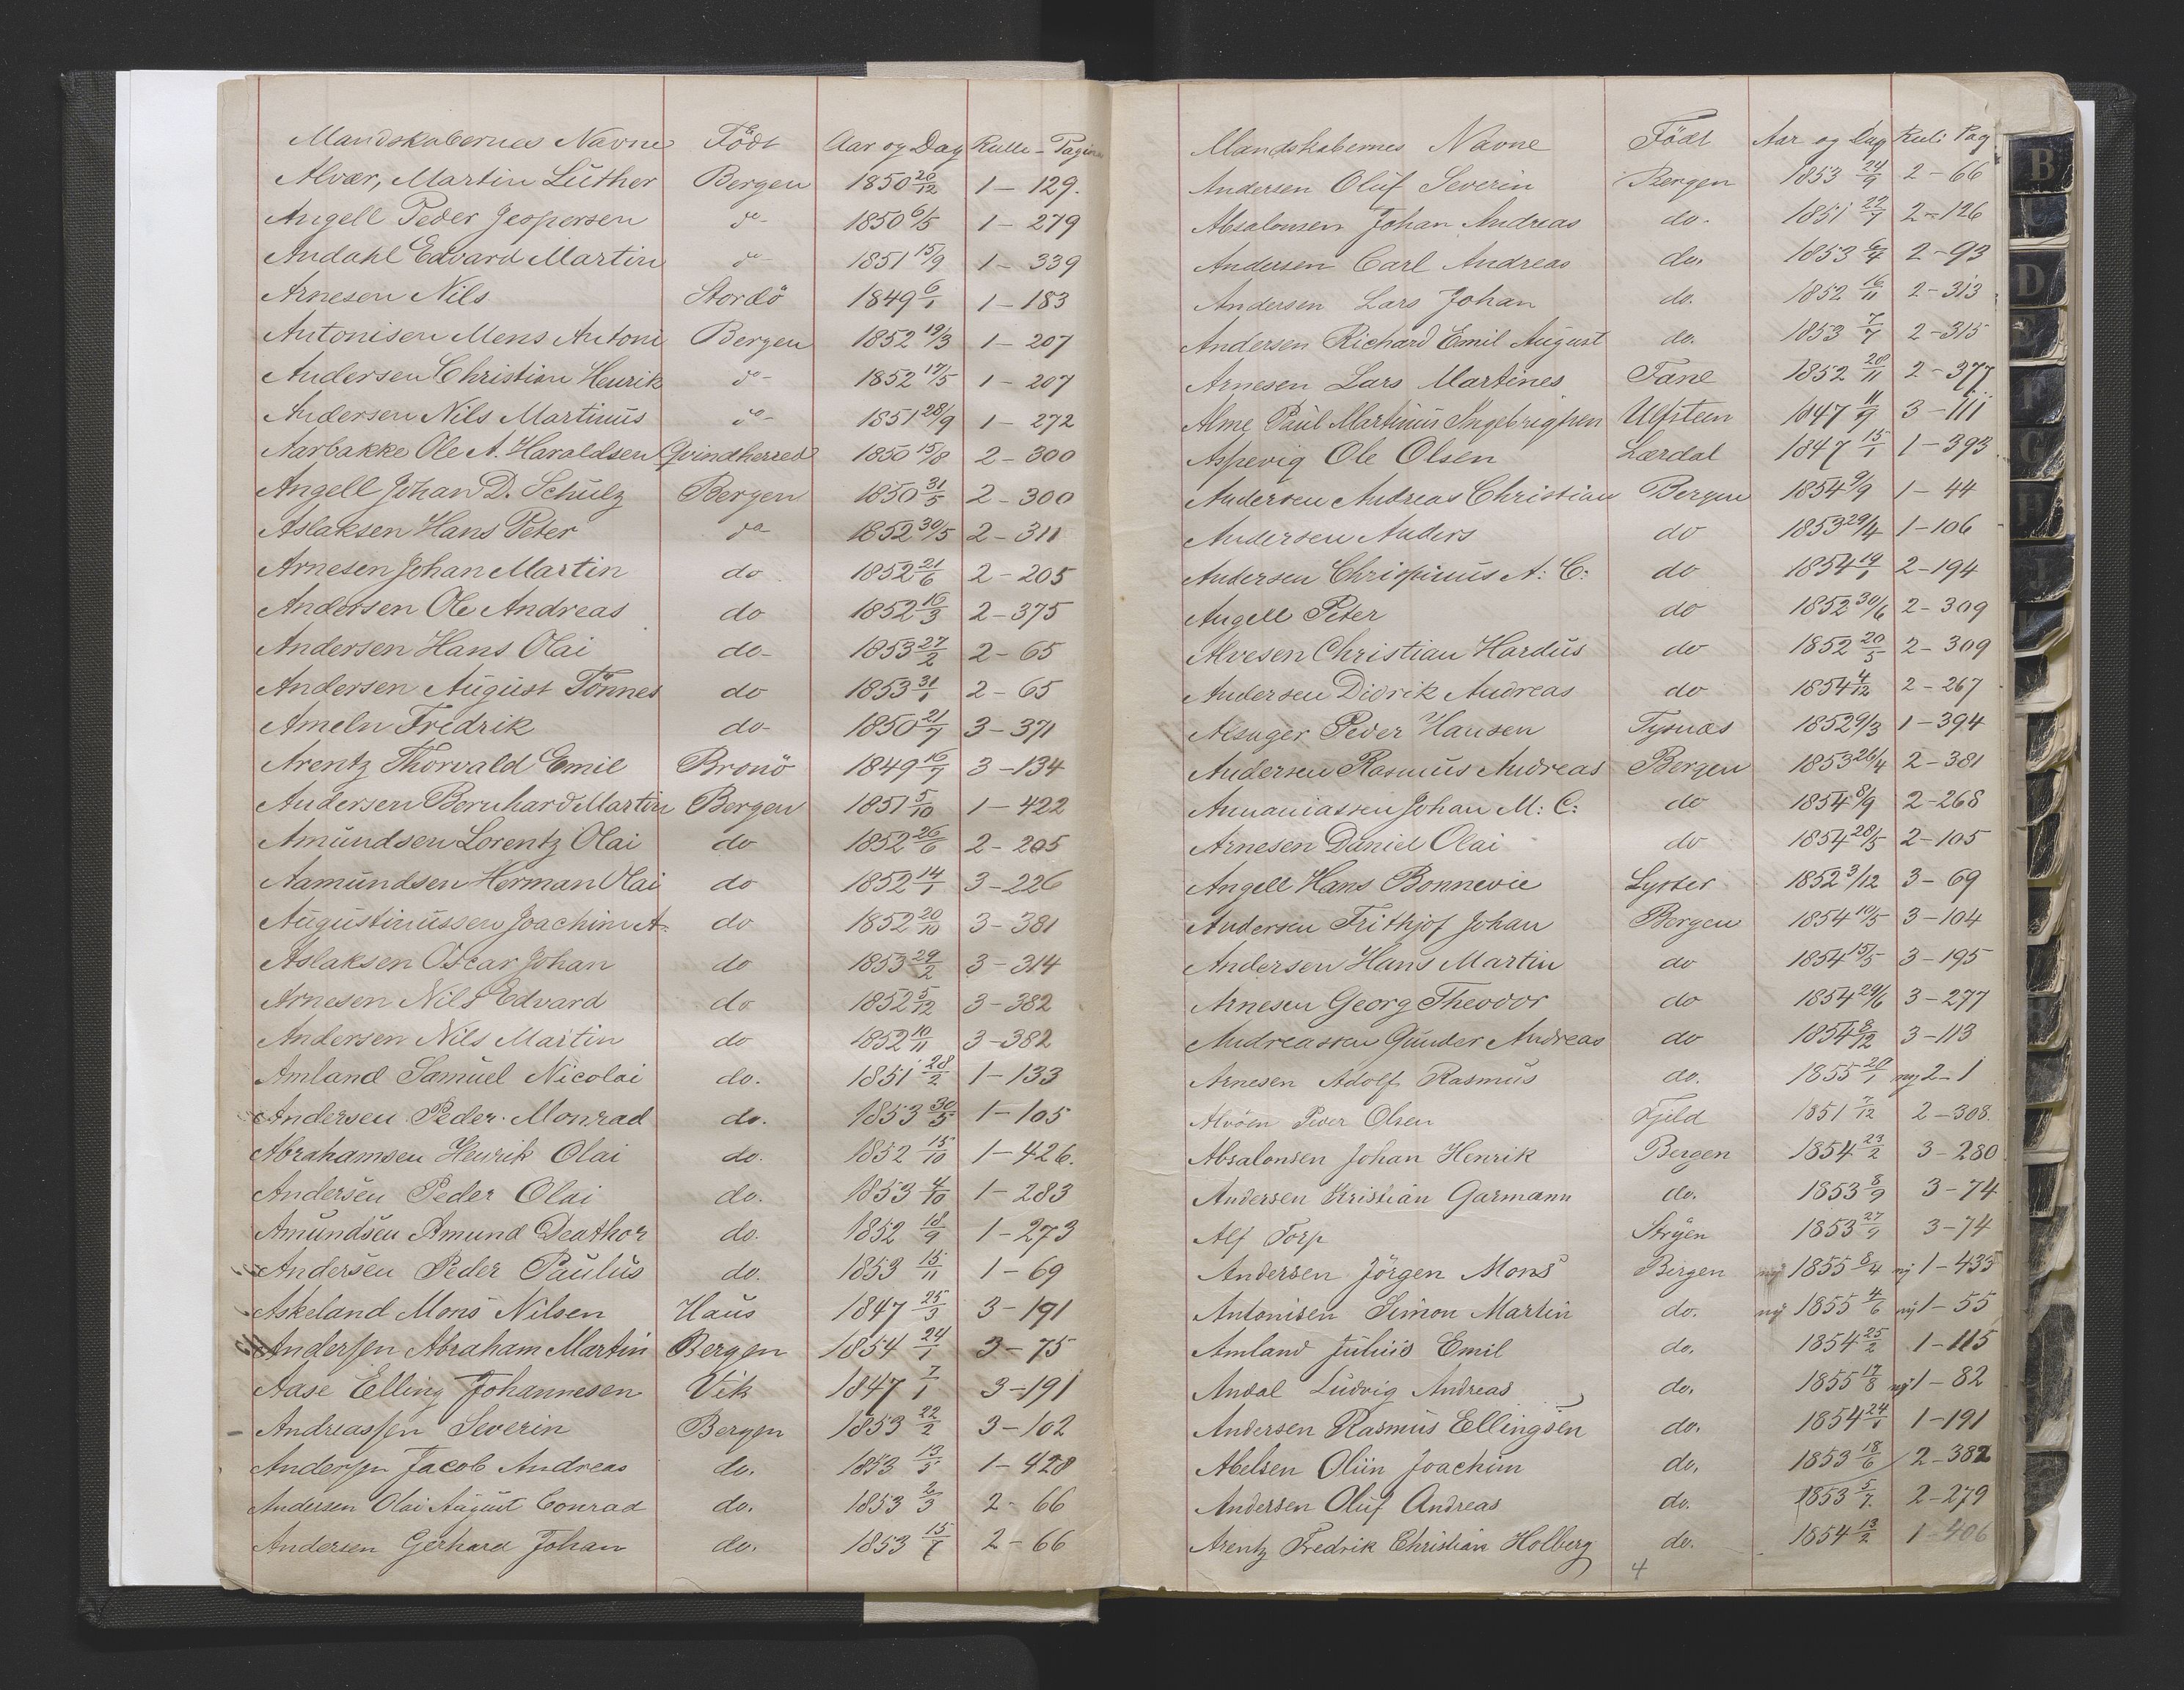 Mandskabernes Navne Födt Aar og Dag Rulle - Pagina
Alvær, Martin Lüther Bergen 1850 20/12 1 - 129.
Angell Peder Jespersen do 1850 6/5 1 - 279
Andahl Edvard Martin do 1851 15/9 1 - 339
Arnesen Nils Stordö 1849 6/1 1 - 183
Antonisen Mens Antoni Bergen 1852 19/3 1 - 207
Andersen Christian Henrik do 1852 17/5 1 - 207
Andersen Nils Martinus do 1851 28/9 1 - 272
Aarbakke Ole A. Haraldsen Qvindherred 1850 15/8 2 - 300
Angell Johan D. Schulz Bergen 1850 31/5 2 - 300
Aslaksen Hans Peter do 1852 30/5 2 - 311
Arnesen Johan Martin do 1852 21/6 2 - 205
Andersen Ole Andreas do 1852 16/3 2 - 375
Andersen Hans Olai do 1853 27/2 2 - 65
Andersen August Tönnes do 1853 31/1 2 - 65
Ameln Fredrik do 1850 21/7 3 - 371
Arentz Thorvald Emil Bronö 1849 16/7 3 - 134
Andersen Bernhard Martin Bergen 1851 5/10 1 - 422
Amundsen Lorentz Olai do 1852 26/6 2 - 205
Aamundsen Herman Olai do 1852 14/1 3 - 226
Augustinussen Joachim A. do 1852 20/10 3 - 381
Aslaksen Oscar Johan do 1853 29/2 3 - 314
Arnesen Nils Edvard do 1852 5/12 3 - 382
Andersen Nils Martin do 1852 10/11 3 - 382
Amland Samuel Nicolai do. 1851 28/2 1 - 133
Andersen Peder Monrad do. 1853 30/5 1 - 105
Abrahamsen Henrik Olai do. 1852 15/10 1 - 426.
Andersen Peder Olai do. 1853 4/10 1 - 283
Amundsen Amund Deathor do. 1852 18/9 1 - 273
Andersen Peder Paulus do. 1853 15/11 1 - 69
Askeland Mons Nilsen Haus 1847 25/3 3 - 191
Anderssen Abraham Martin Bergen 1854 24/1 3 - 75
Aase Elling Johannesen Vik 1847 7/1 3 - 191
Andreassen Severin Bergen 1853 22/2 3 - 102
Anderssen Jacob Andreas do. 1853 13/5 1 - 428
Andersen Olai August Conrad do. 1853 2/3 2 - 66
Andersen Gerhard Johan do. 1853 15/7 2 - 66
Mandskabernes Navne Födt Aar og Dag Rull Pag
Andersen Oluf Severin Bergen 1853 24/9 2 - 66
Absalonsen Johan Andreas do. 1851 22/7 2 - 126
Andersen Carl Andreas do. 1853 6/4 2 - 93
Andersen Lars Johan do. 1852 16/11 2 - 313
Andersen Richard Emil August do. 1853 7/7 2 - 315
Arnesen Lars Martines Fane 1852 20/11 2 - 377
Alme Paul Martinus Ingebrigtsen Ulfsten 1847 11/9 3 - 111
Aspevig Ole Olsen Lærdal 1847 15/1 1 - 393
Andersen Andreas Christian Bergen 1854 9/9 1 - 44
Andersen Anders do 1853 29/4 1 - 106
Andersen Chrispinus A: C: do 1854 19/1 2 - 194
Angell Peter do 1852 30/6 2 - 309
Alvesen Christian Hardus do 1852 20/5 2 - 309
Andersen Didrik Andreas do 1854 4/12 2 - 267
Alsager Peder Hansen Tysnæs 1852 9/3 1 - 394
Andersen Rasmus Andreas Bergen 1853 26/4 2 - 381
Annaniassen Johan M: C: do 1854 8/9 2 - 268
Arnesen Daniel Olai do 1854 28/5 2 - 105
Angell Hans Bonnevie Lyster 1852 3/12 3 - 69
Andersen Frithjof Johan Bergen 1854 10/5 3 - 104
Andersen Hans Martin do 1854 15/5 3 - 195
Arnesen Georg Theodor do 1854 29/6 3 - 277
Andreassen Gunder Andreas do 1854 8/12 3 - 113
Arnesen Adolf Rasmus do. 1855 20/1 ny 2 - 1
Alvöen Peder Olsen Fjeld 1851 7/12 2 - 308.
Absalonsen Johan Henrik Bergen 1854 23/2 3 - 280
Andersen Kristian Garmann do. 1853 8/9 3 - 74
Alf Torp Stryen 1853 27/9 3 - 74
Andersen Jörgen Mons Bergen ny 1855 8/4 ny 1 - 435
Antonisen Simon Martin do. ny 1855 4/6 ny 1 - 55
Amland Julius Emil do. 1854 25/2 1 - 115
Andal Ludvig Andreas do. 1855 17/8 ny 1 - 82
Andersen Rasmus Ellingsen do. 1854 24/1 1 - 191
Abelsen Oliin Joachim do. 1853 18/6 2 - 382
Andersen Oluf Andreas do. 1853 5/7 2 - 279
Arentz Fredrik Christian Holberg do. 1854 13/2 1 - 406
4
B
D
F
G
H